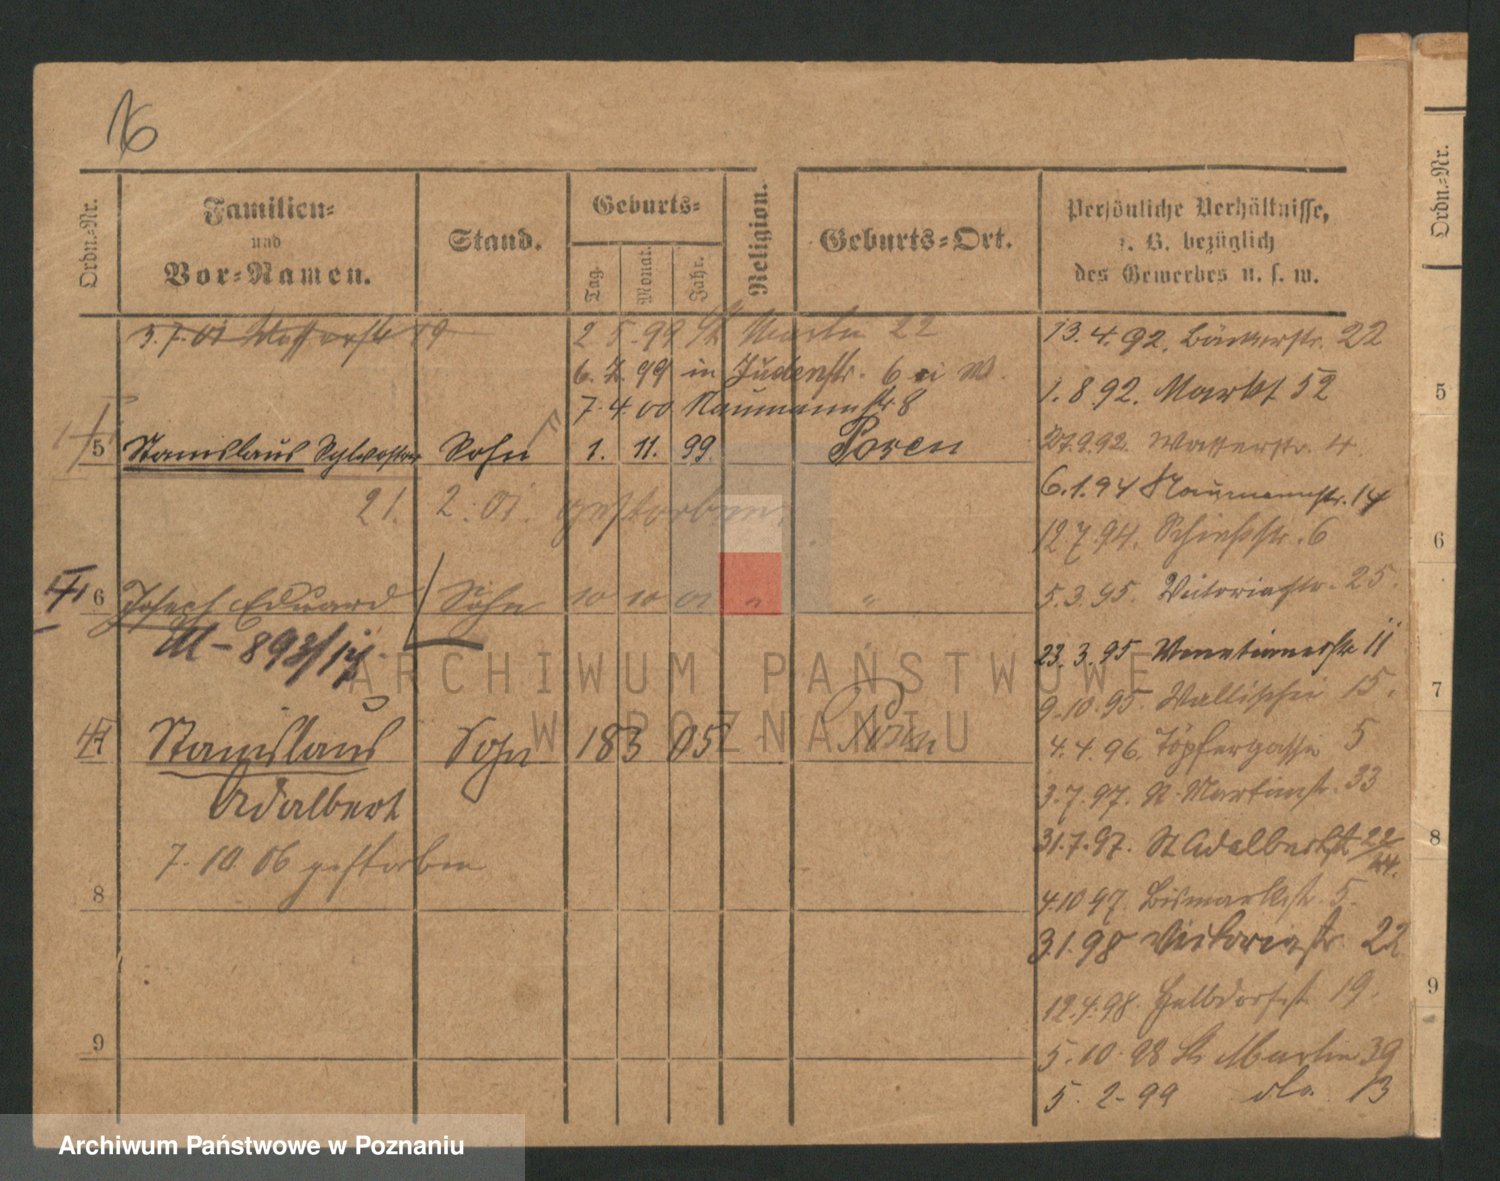 16
Ordn.-Nr.
Familien-
und
Vor-Namen.
Stand.
Geburts-
Tag.
Monat.
Jahr.
Religion.
Geburts-Ort.
Persönliche Verhältnisse,
z. B. bezüglich
des Gewerbes u. s. w.
3.7.01 Wasserstr 19
2 5.99 St Martin 22
6.7.99 in Judenstr. 6
7.4.00 Naumannstr 8
5 Stanislaus Sylvester Sohn 1. 11. 99. Posen
21. 2. 01. gestorben.
6 Joseph Eduard Sohn 10 10 01 " "
M-893/14
7 Stanislaus Sohn 18 3 05 Posen
Adalbert
7.10.06 gestorben
8
9
13.4.92. Bäckerstr. 22
1.8.92. Markt 52
27.9.92. Wasserstr. 4
6.1.94 Naumannstr. 14
12.7.94. Schießstr. 6
5.3.95. Victoriastr. 25.
23.3.95 Venetianerstr 11
9.10.95. Wallischei 15.
4.4.96. Töpfergasse 5
3.7.97. St. Martinstr. 33
31.7.97. St Adalbertstr 22/24.
4.10 97. Bismarckstr. 5.
3.1.98 Victoriastr. 22
12.4.98. Helldorfst 19.
5.10.98 St Martin 39
5. 2-99 do. 13
Ordn.-Nr.
5
6
7
8
9
ARCHIWUM PAŃSTWOWE
W POZNANIU
Archiwum Państwowe w Poznaniu